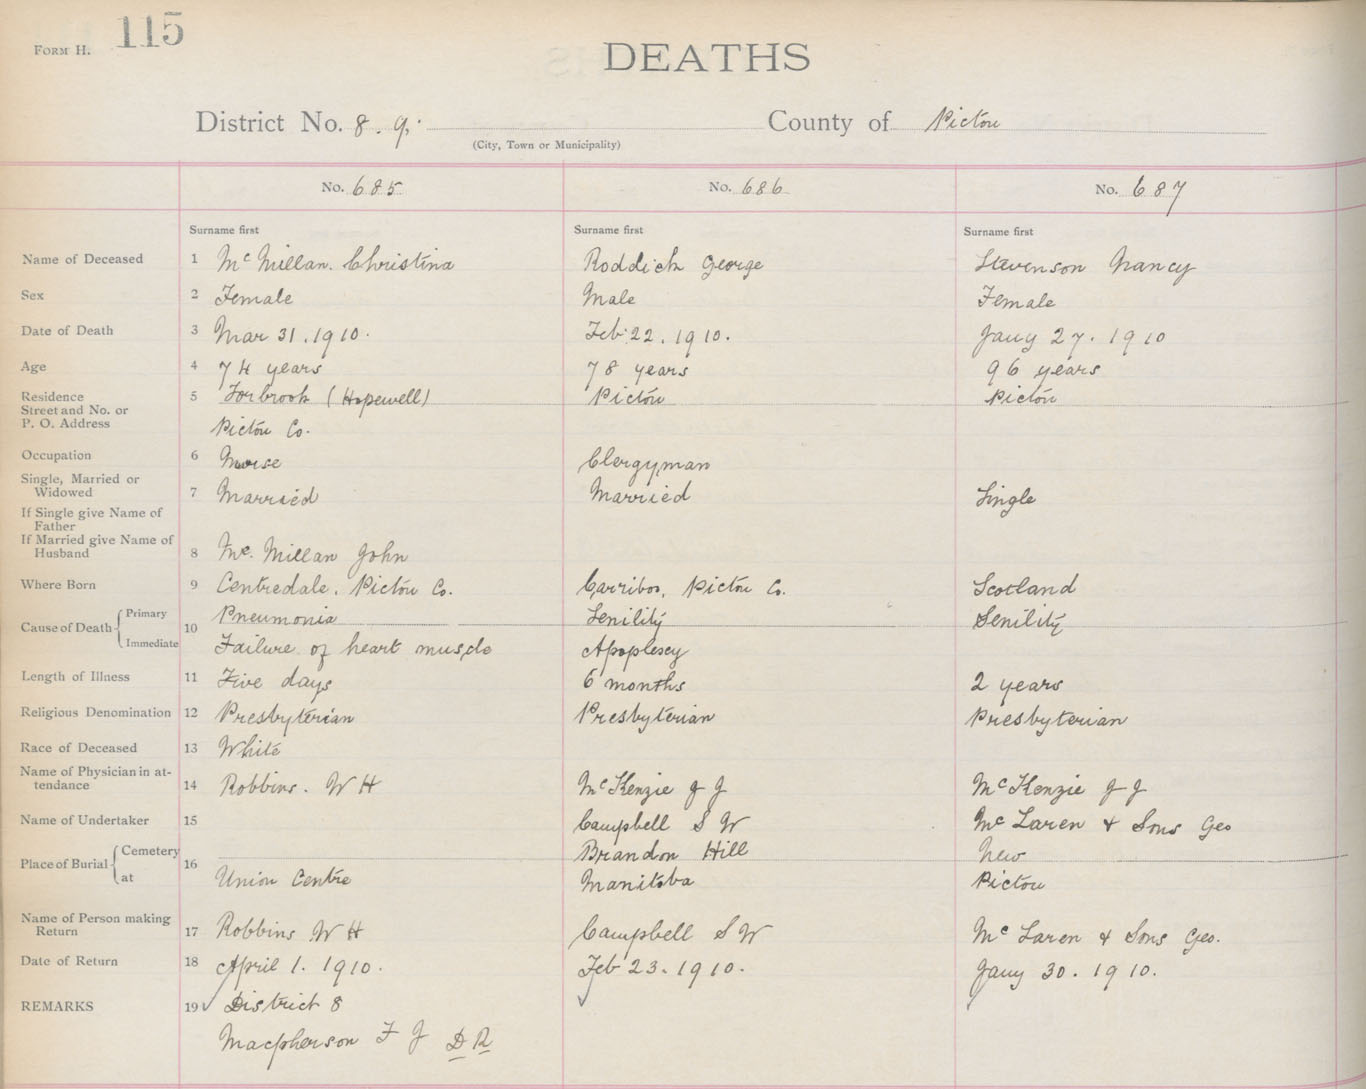 FORM H. 115
DEATHS
District No. 8. 9. County of Pictou
(City, Town or Municipality)
No. 685 No. 686 No. 687
Surname first Surname first Surname first
Name of Deceased 1 McMillan. Christina Roddick George Stevenson Nancy
Sex 2 Female Male Female
Date of Death 3 Mar 31. 1910. Feb 22. 1910. Jany 27. 1910
Age 4 74 years 78 years 96 years
Residence 5 Forbrook (Hopewell) Pictou Pictou
Street and No. or
P. O. Address Pictou Co.
Occupation 6 Nurse Clergyman
Single, Married or
Widowed 7 Married Married Single
If Single give Name of
Father
If Married give Name of
Husband 8 Mc. Millan John
Where Born 9 Centredale. Pictou Co. Carriboo, Pictou Co. Scotland
Cause of Death Primary 10 Pneumonia Senility Senility
Immediate Failure of heart muscle Apoplexy
Length of Illness 11 Five days 6 months 2 years
Religious Denomination 12 Presbyterian Presbyterian Presbyterian
Race of Deceased 13 White
Name of Physician in at-
tendance 14 Robbins. W H McKenzie J J McKenzie J J
Name of Undertaker 15 Campbell S W Mc Laren & Sons Geo
Place of Burial Cemetery 16 Brandon Hill New
at Union Centre Manitoba Pictou
Name of Person making
Return 17 Robbins W H Campbell S W Mc Laren & Sons Geo.
Date of Return 18 April 1. 1910. Feb 23. 1910. Jany 30. 1910.
REMARKS 19 District 8
Macpherson F J D R